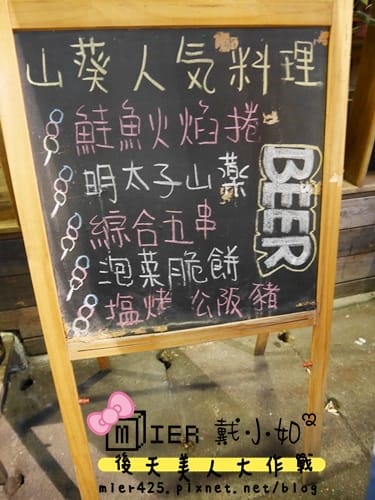 山葵人気料理
鮭魚火焰捲
明太子山薬
綜合五串
泡菜脆餅
塩烤公阪豬
BEER
mIER 戴小如
後天美人大作戰
mier425.pixnet.net/blog